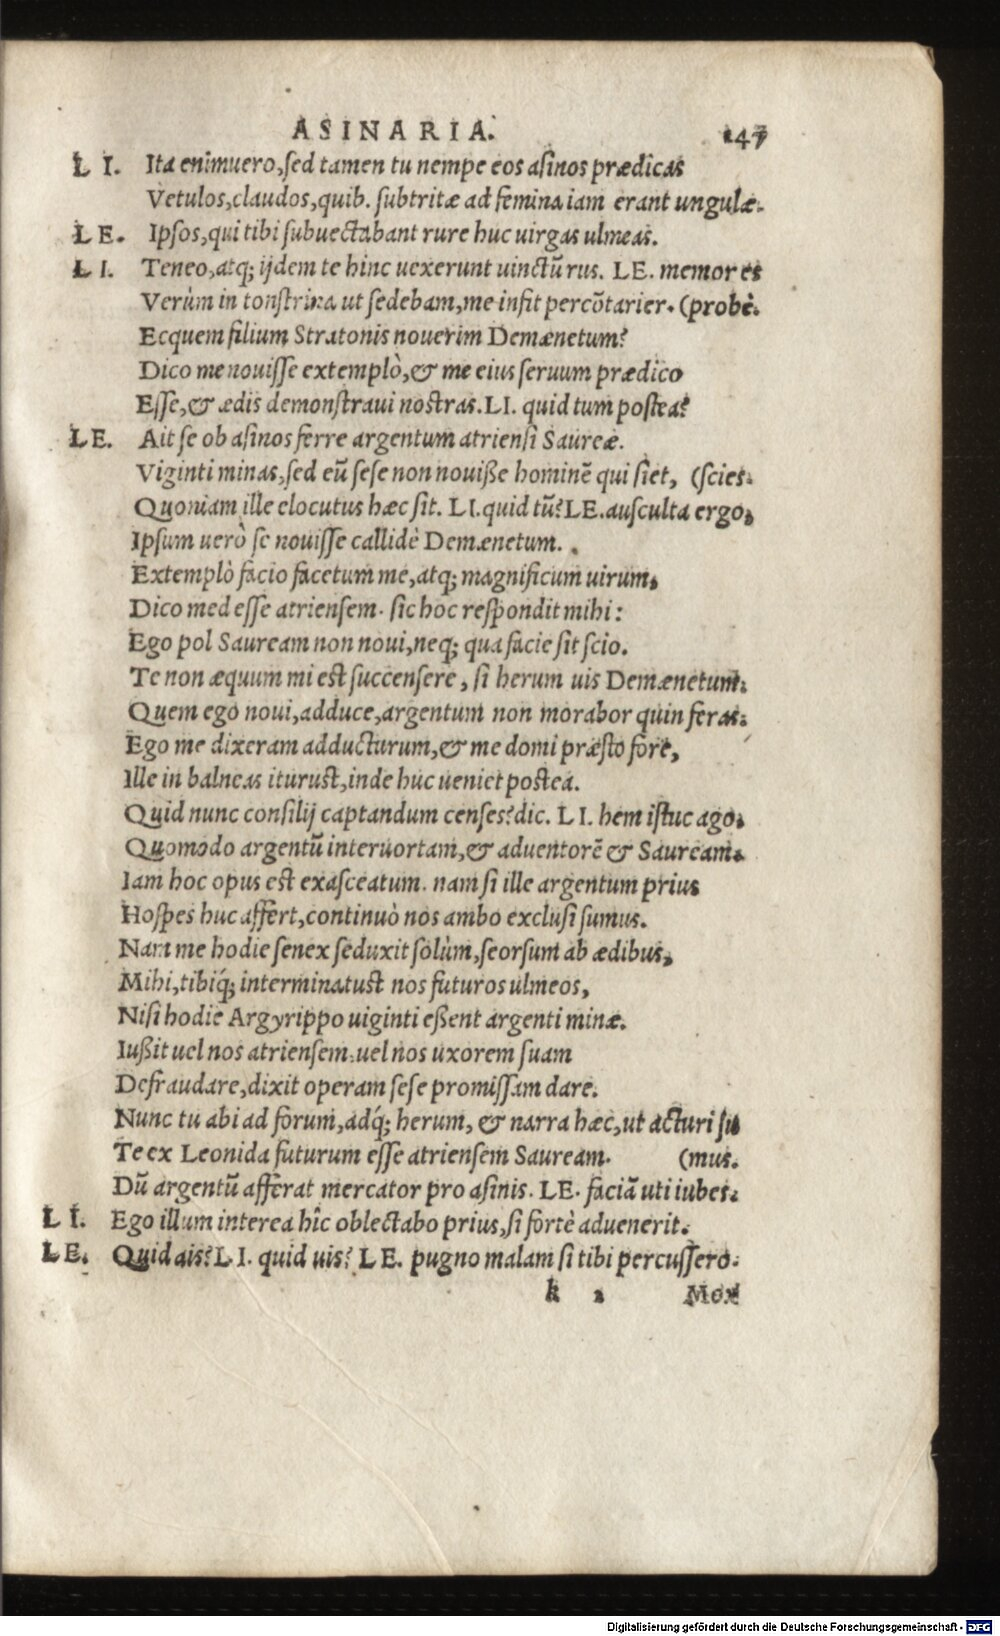 ASINARIA. 147
LI. Ita enimuero, sed tamen tu nempe eos asinos prædicas
Vetulos, claudos, quib. subtritæ ad femina iam erant ungulæ.
LE. Ipsos, qui tibi subuectabant rure huc uirgas ulmeas.
LI. Teneo, atq; ijdem te hinc uexerunt uinctū rus. LE. memor es
Verùm in tonstrina ut sedebam, me infit percōtarier. (probè.
Ecquem filium Stratonis nouerim Demænetum?
Dico me nouisse extemplò, & me eius seruum prædico
Esse, & ædis demonstraui nostras. LI. quid tum postea?
LE. Ait se ob asinos ferre argentum atriensi Saureæ.
Viginti minas, sed eū sese non nouiße hominē qui siet, (scies.
Quoniam ille elocutus hæc sit. LI. quid tū? LE. ausculta ergo,
Ipsum uerò se nouisse callidè Demænetum.
Extemplò facio facetum me, atq; magnificum uirum,
Dico med esse atriensem. sic hoc respondit mihi:
Ego pol Sauream non noui, neq; qua facie sit scio.
Te non æquum mi est succensere, si herum uis Demænetum.
Quem ego noui, adduce, argentum non morabor quin feras.
Ego me dixeram adducturum, & me domi præsto fore,
Ille in balneas iturust, inde huc ueniet postea.
Quid nunc consilij captandum censes? dic. LI. hem istuc ago.
Quomodo argentū interuortam, & aduentorē & Sauream.
Iam hoc opus est exasceatum. nam si ille argentum prius
Hospes huc affert, continuò nos ambo exclusi sumus.
Nam me hodie senex seduxit solùm, seorsum ab ædibus,
Mihi, tibiq́; interminatust nos futuros ulmeos,
Nisi hodie Argyrippo uiginti eßent argenti minæ.
Iußit uel nos atriensem, uel nos uxorem suam
Defraudare, dixit operam sese promissam dare.
Nunc tu abi ad forum, adq́; herum, & narra hæc, ut acturi su
Te ex Leonida futurum esse atriensem Sauream. (mus.
Dū argentū afferat mercator pro asinis. LE. faciā uti iubes.
LI. Ego illum interea hîc oblectabo prius, si fortè aduenerit.
LE. Quid ais? LI. quid uis? LE. pugno malam si tibi percussero.
k 2 Mox
Digitalisierung gefördert durch die Deutsche Forschungsgemeinschaft - DFG